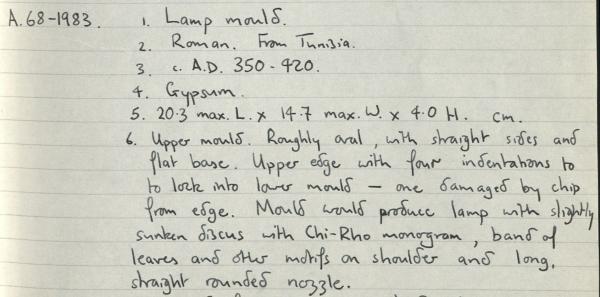 A.68-1983. 1. Lamp mould.
2. Roman. From Tunisia.
3. c. A.D. 350-420.
4. Gypsum.
5. 20.3 max. L. x 14.7 max. W. x 4.0 H. cm.
6. Upper mould. Roughly oval, with straight sides and
flat base. Upper edge with four indentations to
to lock into lower mould — one damaged by chip
from edge. Mould would produce lamp with slightly
sunken discus with Chi-Rho monogram, band of
leaves and other motifs on shoulder and long,
straight rounded nozzle.